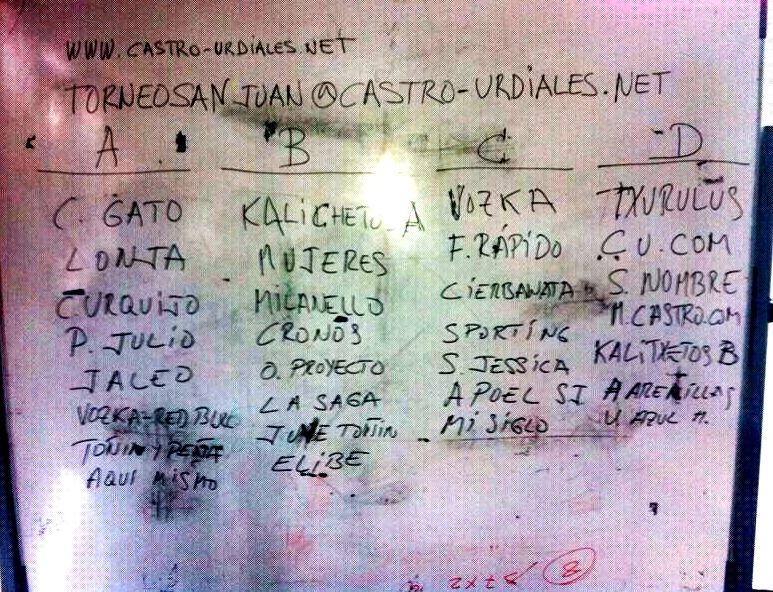 WWW.CASTRO-URDIALES.NET
TORNEOSANJUAN@CASTRO-URDIALES.NET
A B C D
C. GATO
LONJA
CURQUIJO
P. JULIO
JALEO
VOZKA-RED BULL
TOÑIN Y PEÑA
AQUI MISMO
KALICHETOS A
MUJERES
MILANELLO
CRONOS
O. PROYECTO
LA SAGA
JUNE TOÑIN
ELIBE
VOZKA
F. RÁPIDO
CIERBANATA
SPORTING
S. JESSICA
APOEL SI
MI SIGLO
TXURULUS
C.U.COM
S. NOMBRE
M.CASTRO.COM
KALITXETOS B
ARENILLAS
U AZUL M.
8